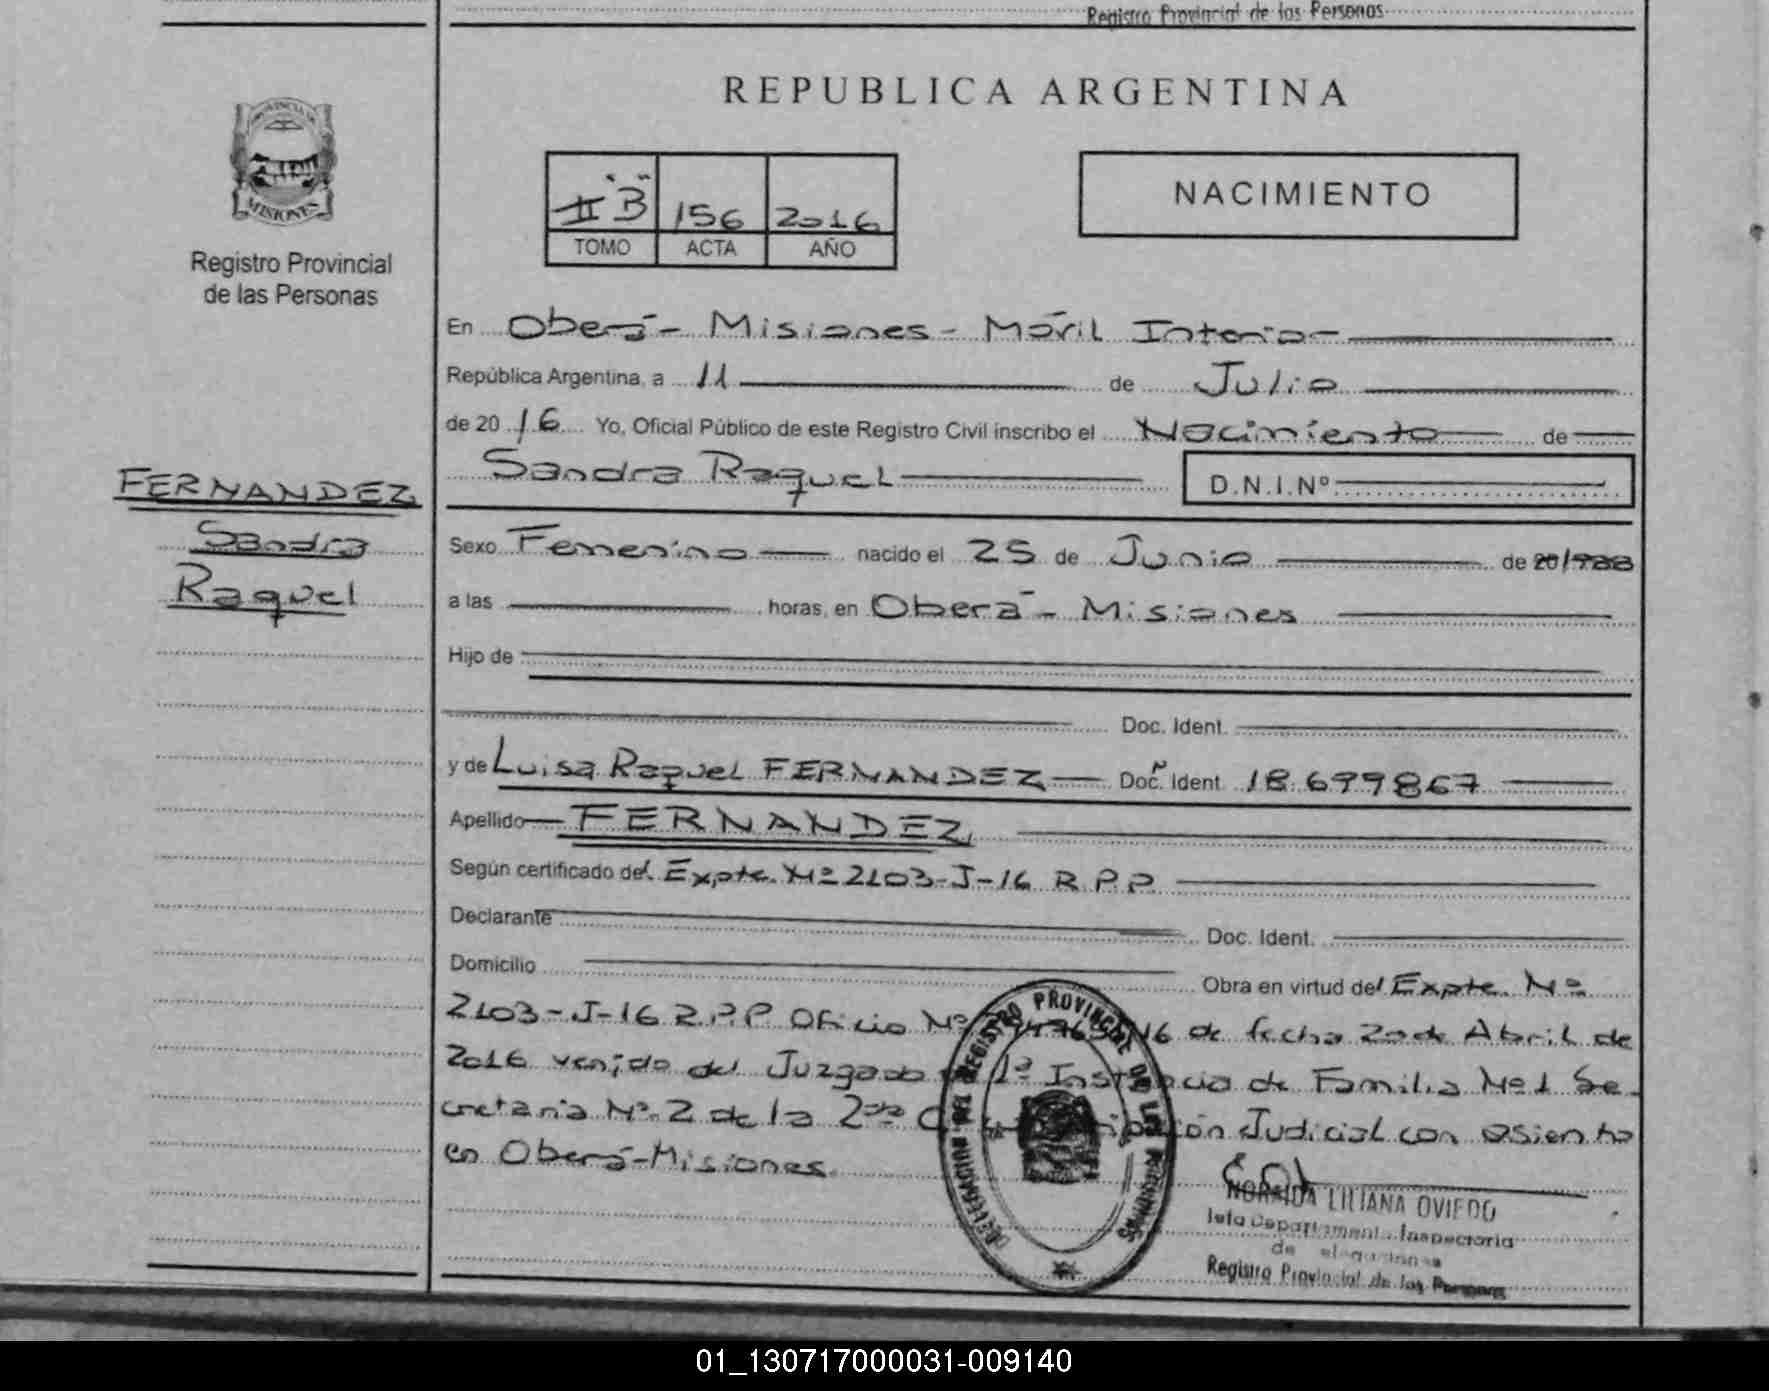 Registro Provincial de las Personas
REPUBLICA ARGENTINA
PROVINCIA DE
MISIONES
Registro Provincial
de las Personas
II "B" 156 2016
TOMO ACTA AÑO
NACIMIENTO
En Oberá - Misiones - Móvil Interior
República Argentina, a 11 de Julio
de 2016 Yo, Oficial Público de este Registro Civil inscribo el Nacimiento de
Sandra Raquel D.N.I.Nº
FERNANDEZ
Sandra
Raquel
Sexo Femenino nacido el 25 de Junio de 20/1988
a las horas, en Oberá - Misiones
Hijo de
Doc. Ident.
y de Luisa Raquel FERNANDEZ Doc. Ident. 18.699867
Apellido FERNANDEZ
Según certificado del Expte. Nº 2103-J-16 R.P.P
Declarante Doc. Ident.
Domicilio Obra en virtud del Expte. Nº
2103-J-16 R.P.P Oficio Nº 16 de fecha 20 de Abril de
2016 venido del Juzgado 1ª Instancia de Familia Nº 1 Se-
cretaria Nº 2 de la 2da Circunscripción Judicial con asiento
en Oberá-Misiones.
DELEGACION DEL REGISTRO PROVINCIAL DE LAS PERSONAS
NORAIDA LILIANA OVIEDO
Jefa Departamento Inspectoria
de Delegaciones
Registro Provincial de las Personas
01_130717000031-009140